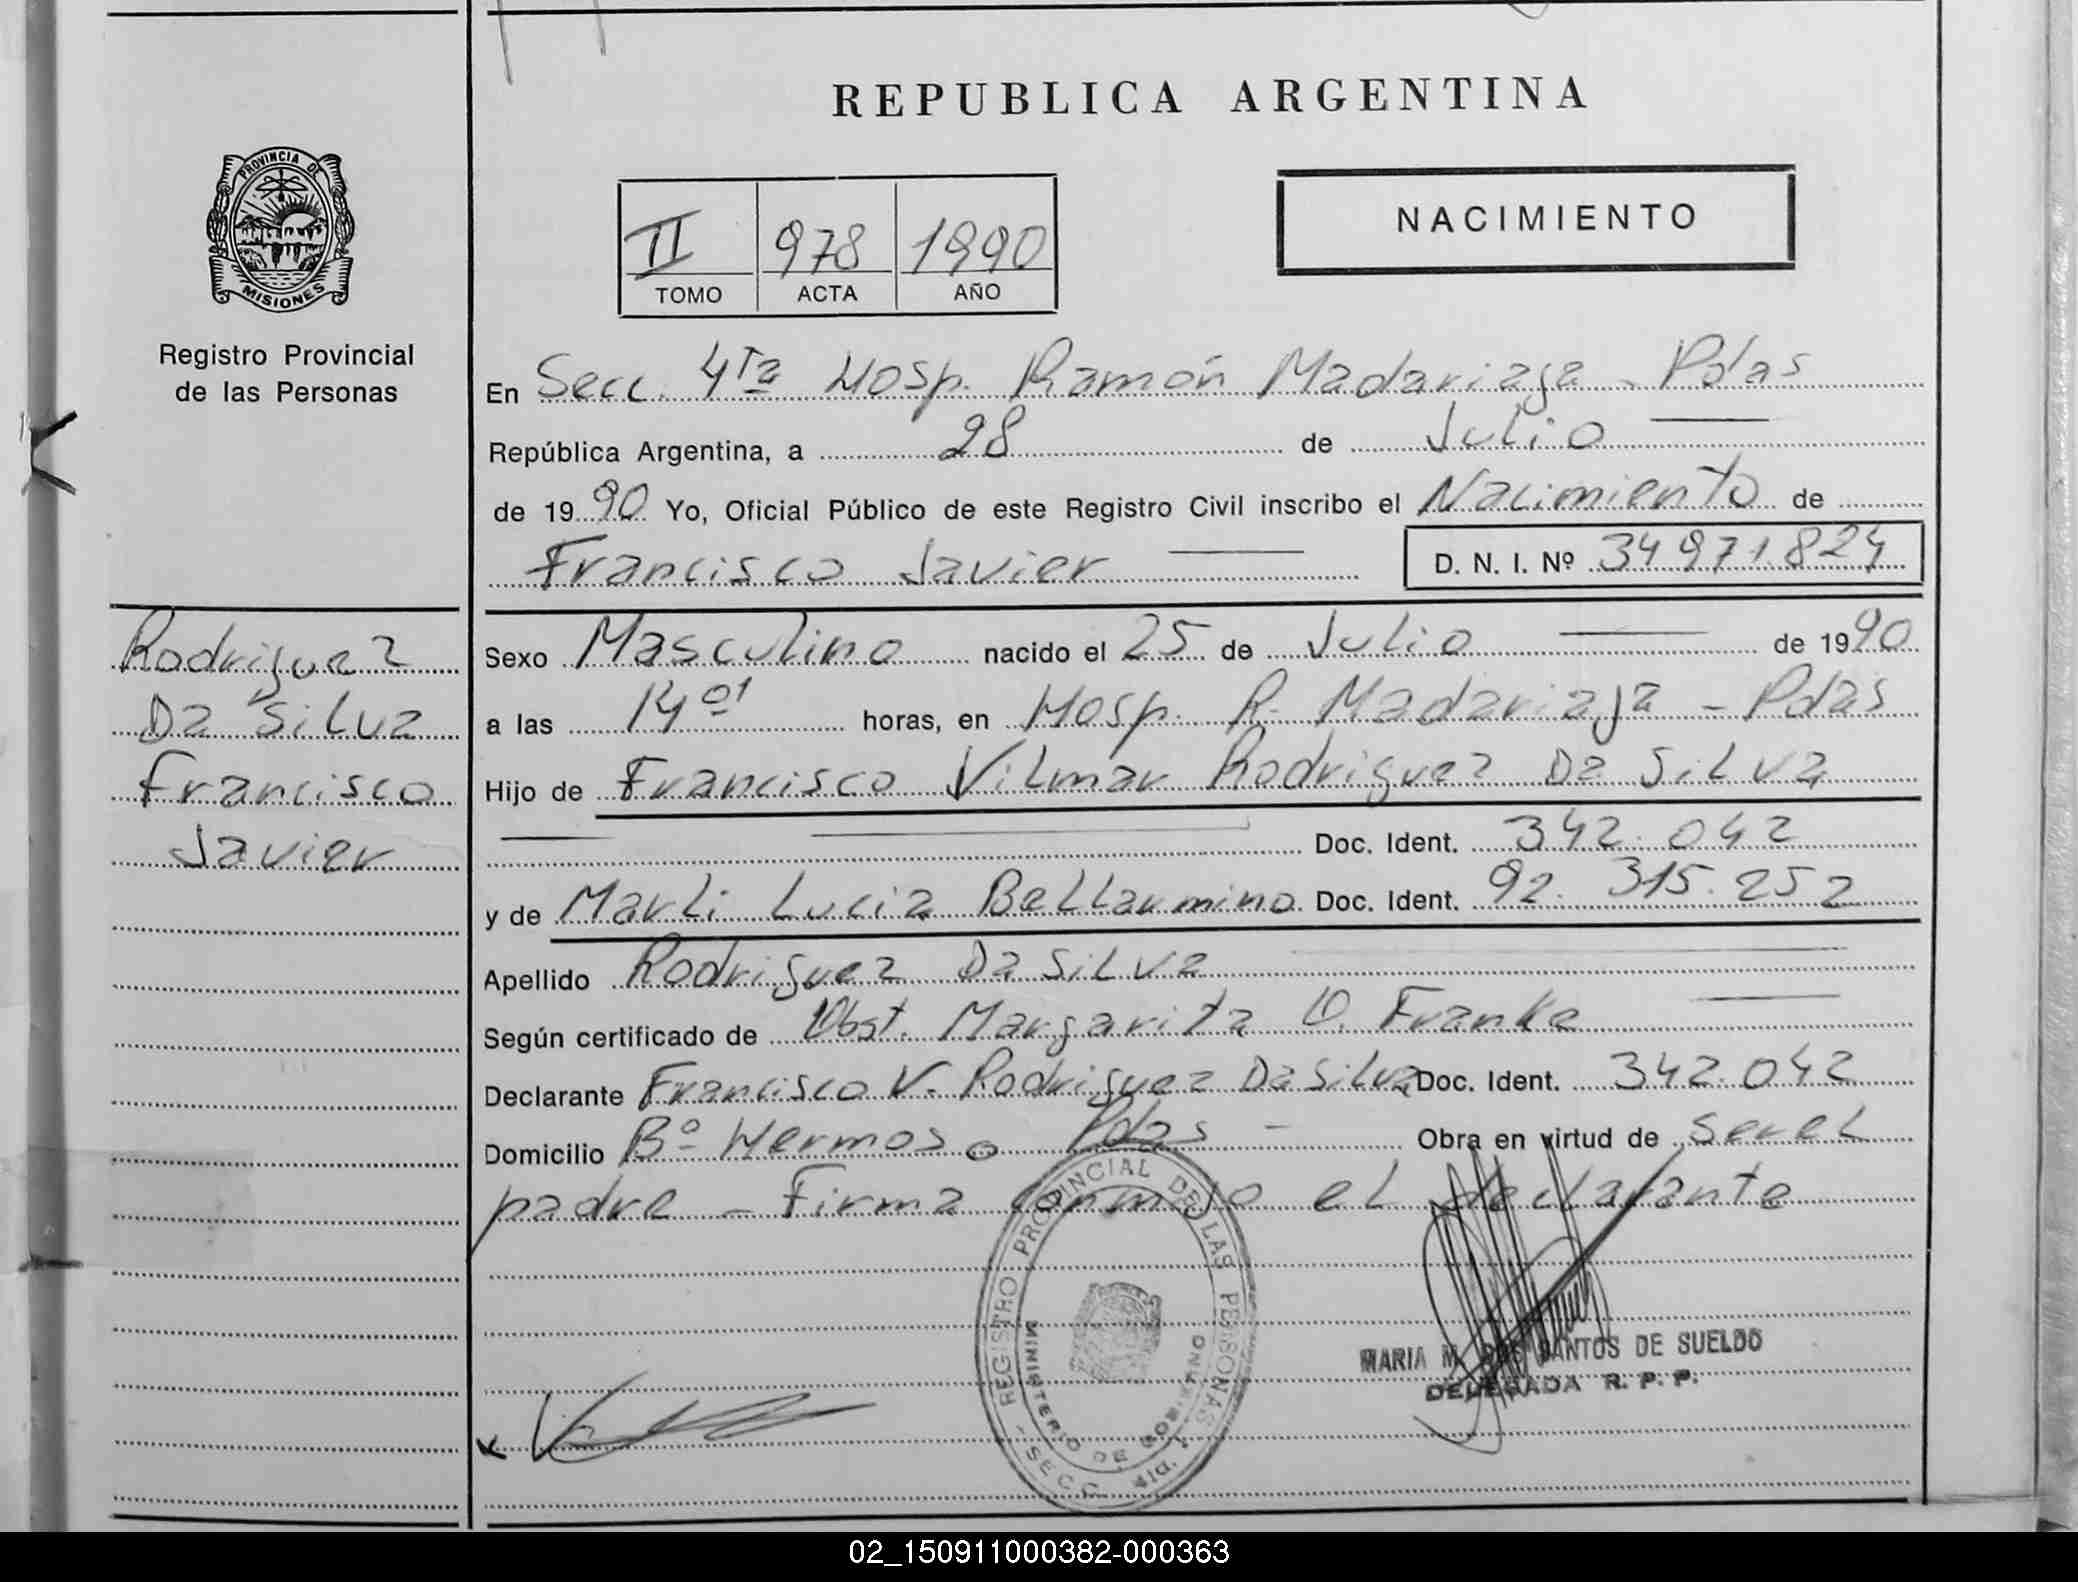 REPUBLICA ARGENTINA
PROVINCIA DE
MISIONES
Registro Provincial
de las Personas
NACIMIENTO
II 978 1990
TOMO ACTA AÑO
En Secc. 4ta Hosp. Ramón Madariaga - Pdas
República Argentina, a 28 de Julio
de 1990 Yo, Oficial Público de este Registro Civil inscribo el Nacimiento de
Francisco Javier D. N. I. Nº 34971824
Rodriguez
Da Silva
Francisco
Javier
Sexo Masculino nacido el 25 de Julio de 1990
a las 14 01 horas, en Hosp. R. Madariaga - Pdas
Hijo de Francisco Vilmar Rodriguez Da Silva
Doc. Ident. 342.042
y de Marli Lucia Bellarmino Doc. Ident. 92.315.252
Apellido Rodriguez Da Silva
Según certificado de Obst. Margarita O. Franke
Declarante Francisco V. Rodriguez Da Silva Doc. Ident. 342.042
Domicilio Bº Hermoso Pdas - Obra en virtud de ser el
padre - Firma conmigo el declarante
REGISTRO PROVINCIAL DE LAS PERSONAS
MINISTERIO DE GOBIERNO
SECC.
MARIA M. DOS SANTOS DE SUELDO
DELEGADA R. P. P.
02_150911000382-000363